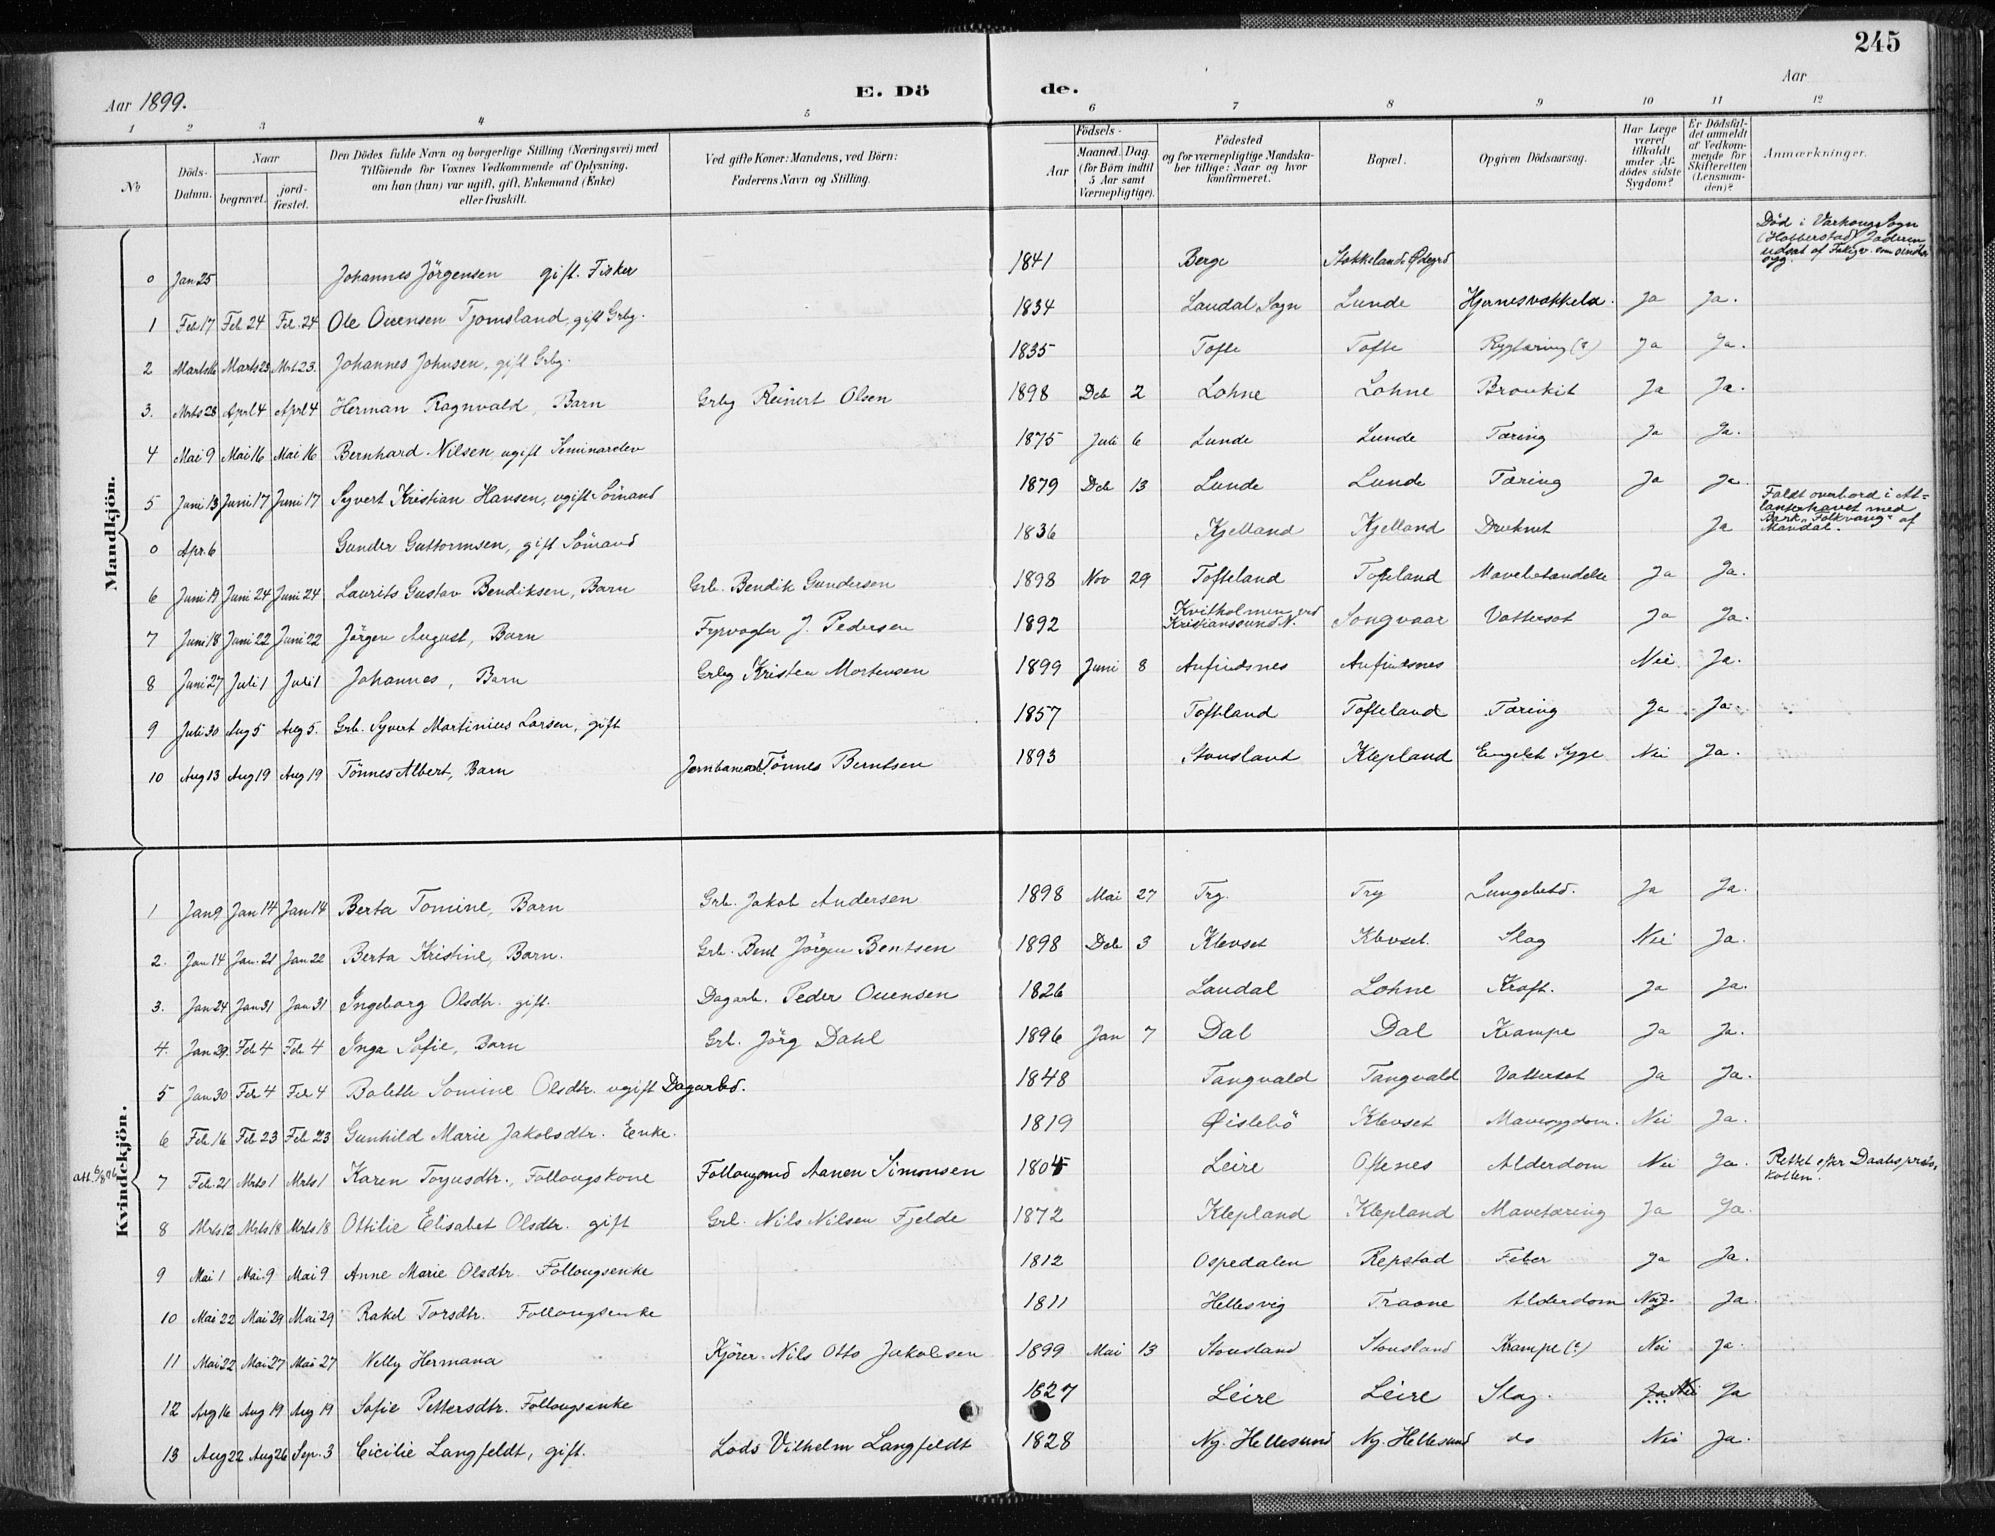 245
Aar 1899. E. Dö de. Aar
1 2 3 4 5 6 7 8 9 10 11 12
No
Döds-Datum.
Naar begravet. jordfæstet.
Den Dödes fulde Navn og borgerlige Stilling (Næringsvei) med Tilföiende for Voxnes Vedkommende af Oplysning, om han (hun) var ugift, gift, Enkemand (Enke) eller fraskilt.
Ved gifte Koner: Mandens, ved Börn: Faderens Navn og Stilling.
Födsels- Aar Maaned. Dag. (for Börn indtil 5 Aar samt Værnepligtige).
Födested og for værnepligtige Mandskaber tillige: Naar og hvor konfirmeret.
Bopæl.
Opgiven Dödsaarsag.
Har Læge været tilkaldt under Afdödes sidste Sygdom?
Er Dödsfaldet anmeldt af Vedkommende for Skifteretten (Lensmanden)?
Anmærkninger.
Mandkjön.
0 Jan 25 Johannes Jörgensen gift. Fisker 1841 Berge Stokkeland Ødegrd Död i Varhoug Sogn (Hobberstad) Jæderen
1 Feb 17 Feb 24 Feb. 24 Ole Ouensen Tjomsland, gift Grbg. 1834 Laudal Sogn Lunde Hjernesvækkelse. Ja Ja.
2 Marts 16 Marts 23 Mrt 23. Johannes Johnsen, gift Grbg. 1835 Tofte Tofte Rygtæring (?) Ja Ja.
3. Mrts 28 Apl 4 Apl 4 Herman Ragnvald, Barn Grbg Reinert Olsen 1898 Deb 2 Lohne Lohne Bronkit Ja Ja.
4 Mai 9 Mai 16 Mai 16 Bernhard Nilsen, ugift Seminarelev 1875 Juli 6 Lunde Lunde Tæring Ja Ja.
5 Juni 13 Juni 17 Juni 17 Syvert Kristian Hansen, ugift Sömand 1879 Deb 13 Lunde Lunde Tæring Ja Ja
0 Apr. 6 Gunder Guttormsen, gift Sömand 1836 Kjelland Kjelland Druknet Ja Faldt overbord i Atlanterhavet med Bark "Folkvang" af Mandal.
6 Juni 19 Juni 24 Juni 24 Laurits Gustav Bendiksen, Barn Grb. Bendik Gundersen 1898 Nov 29 Tofteland Tofteland Mavebetændelse Ja Ja.
7 Juni 18 Juni 22 Juni 22 Jörgen August, Barn Fyrvogter J. Pedersen 1892 Kvitholmen ved Kristianssund N. Songvaar Vattersot Ja Ja.
8 Juni 27 Juli 1 Juli 1 Johannes, Barn Grbg Kristen Mortensen 1899 Juni 8 Anfindsnes Anfindsnes Nei Ja.
9 Juli 30 Aug 5 Aug 5. Grb. Syvert Martinius Larsen, gift 1857 Tofteland Tofteland Tæring Ja Ja.
10 Aug 13 Aug 19 Aug 19 Tönnes Albert, Barn Jernbanearb. Tönnes Berntsen 1893 Stousland Klepland Engelsk Syge Nei Ja.
Kvindekjön.
1 Jan 9 Jan 14 Jan 14 Berta Tomine, Barn Grb. Jakob Andersen 1898 Mai 27 Try. Try Lungebetd. Ja Ja.
2. Jan 14 Jan. 21 Jan 22 Berta Kristine, Barn. Grb. Bent Jörgen Bentsen 1898 Deb 3 Klevset Klevset. Slag Nei Ja.
3. Jan 24 Jan 31 Jan 31 Ingeborg Olsdtr. gift. Dagarb. Peder Ouensen 1826 Laudal Lohne Kræft. Ja Ja.
4. Jan 29. Feb 4 Feb 4 Inga Sofie, Barn Grb. Jörg Dahl 1896 Jan 7 Dal Dal Krampe Ja Ja.
5 Jan 30 Feb 4 Feb 4 Bolette Tomine Olsdtr. ugift Dagarbd. 1848 Tangvald Tangvald Vattersot Ja Ja.
6 Feb 16 Feb 23 Feb 23 Gunhild Marie Jakobsdtr. Enke. 1819 Øislebö Klevset Mavesygdom. Nei Ja.
7 Feb. 21 Mrts 1 Mrts 1 Karen Torjusdtr., Follougskone Follougmd Aanen Simonsen 1805 Leire Oftenes Alderdom Nei Ja. Rettet efter Daabsprotokollen.
8 Mrts 12 Mrts 18 Mrts 18 Ottilie Elisabet Olsdtr. gift Grb. Nils Nilsen Fjelde 1872 Klepland Klepland Mavetæring Ja Ja.
9 Mai 1 Mai 9 Mai 9 Anne Marie Olsdtr. Follougsenke 1812 Ospedalen Repstad Feber Ja Ja.
10 Mai 22 Mai 29 Mai 29 Rakel Torsdtr. Follougsenke 1811 Hellesvig Traane Alderdom Nei. Ja
11 Mai 22 Mai 27 Mai 27 Nelly Hermana Kjörer. Nils Otto Jakobsen 1899 Mai 13 Stousland Stousland Krampe (?) Nei Ja.
12 Aug 16 Aug 19 Aug 19 Sofie Pettersdtr. Follougsenke 1827 Leire Leire Slag. Ja Nei Ja
13 Aug 22 Aug 26 Sep. 3 Cicilie Langfeldt, gift. Lods Vilhelm Langfeldt 1828 Ny. Hellesund Ny. Hellesund do Nei Ja.